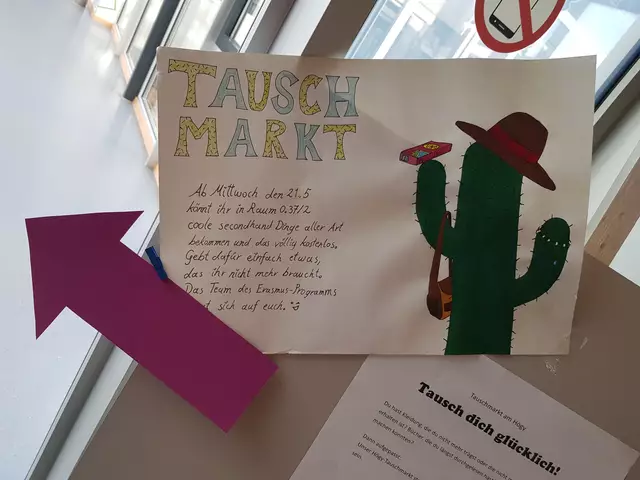 TAUSCH
MARKT
Ab Mittwoch den 21.5
könnt ihr in Raum 0.37/2
coole secondhand Dinge aller Art
bekommen und das völlig kostenlos.
Gebt dafür einfach etwas,
das ihr nicht mehr braucht.
Das Team des Erasmus-Programms
sich auf euch.
Tauschmarkt am Högy
Tausch dich glücklich!
Du hast Kleidung, die du nicht mehr trägst oder die nicht
erhalten ist? Bücher, die du längst durchgelesen
machen könnten?
Dann aufgepasst:
Unser Högy-Tauschmarkt
sein.